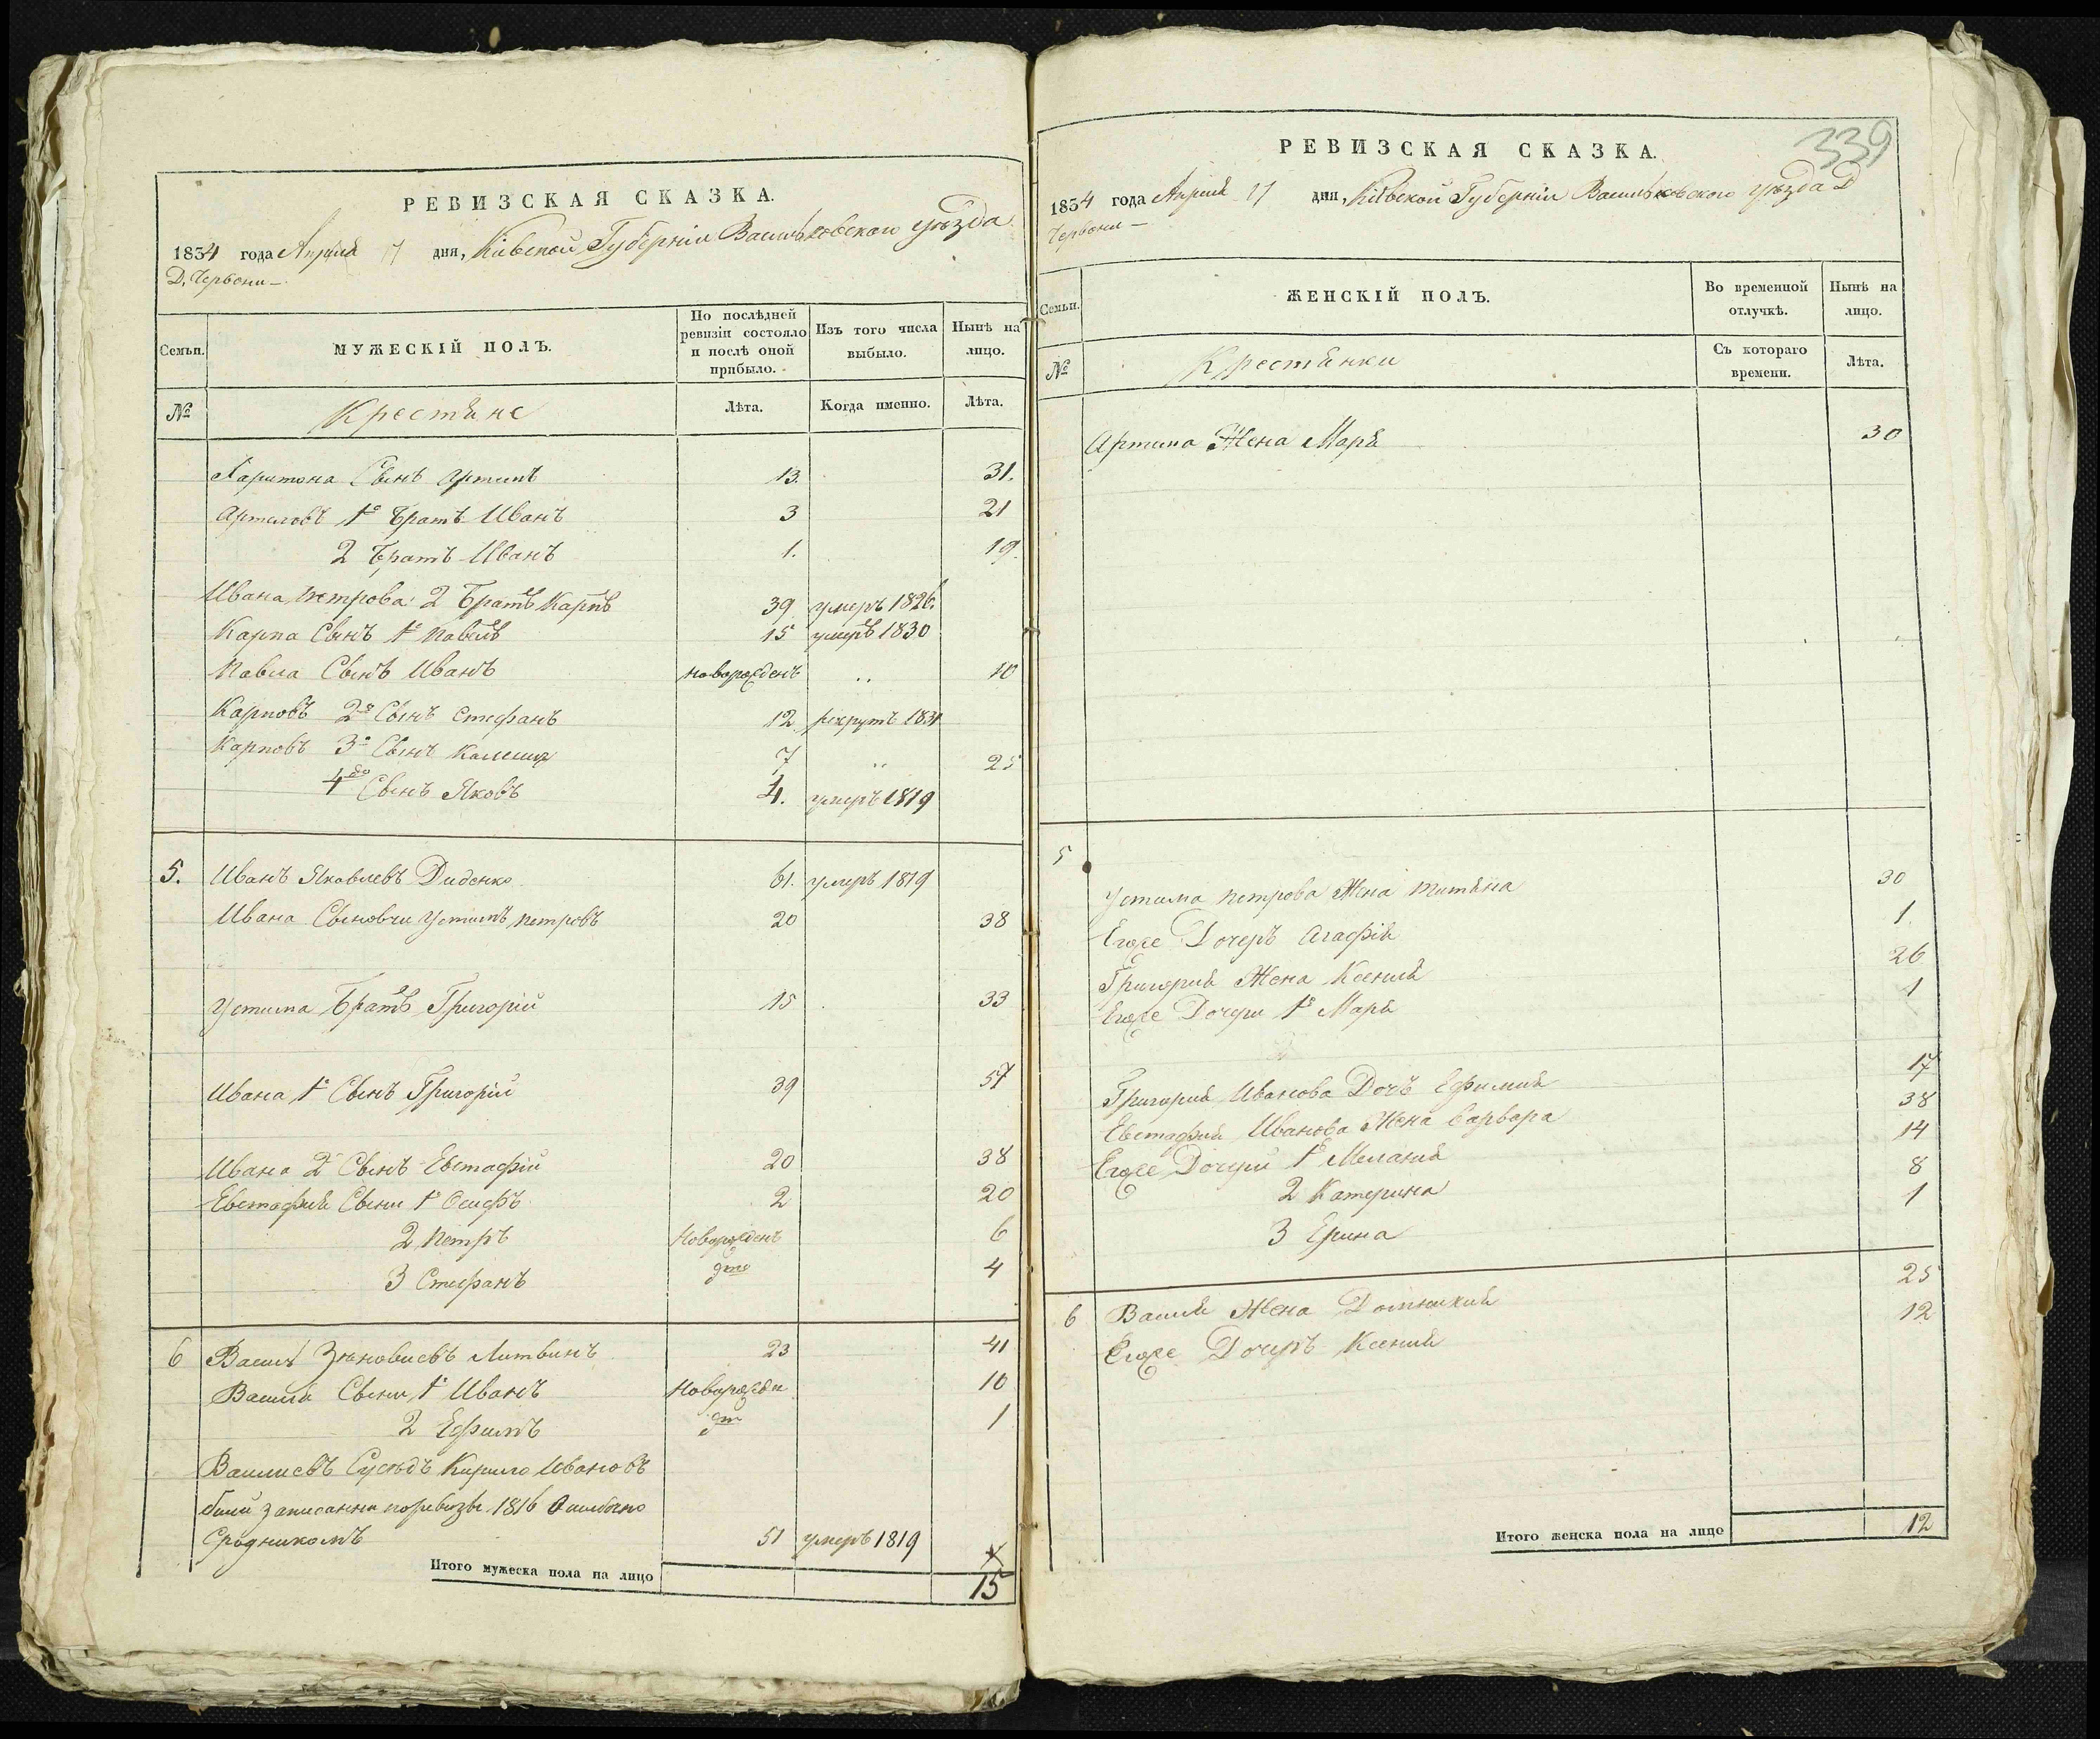 РЕВИЗСКАЯ СКАЗКА.
1834 года Апреля 17 дня, Кіевской Губерніи Васильковского уѣзда
Д. Червони
Семьи.
МУЖЕСКІЙ ПОЛЪ.
По послѣдней ревизіи состояло и послѣ оной прибыло.
Изъ того числа выбыло.
Нынѣ на лицо.
№
Крестяне
Лѣта.
Когда именно.
Лѣта.
Харитона Сынъ Артипъ 13. 31.
1й Братъ Иванъ 3 21
2 Братъ Иванъ 1. 19.
Ивана Петрова 2 Братъ Карпъ 39 умеръ 1826.
Карпа Сынъ 1й Павелъ 15 умеръ 1830
Павла Сынъ Иванъ новорожденъ 10
Карповъ 2й Сынъ Стефанъ 12 рекрутъ 1831
Карповъ 3й Сынъ 7 25
4й Сынъ Яковъ 4. умеръ 1819
5. Иванъ Яковлевъ Диденко 61. умеръ 1819
Ивана Сыновчи Устимъ Петровъ 20 38
Устима Братъ Григорій 15 33
Ивана 1й Сынъ Григорій 39 57
Ивана 2й Сынъ Евстафій 20 38
Евстафия Сыни 1й Осифъ 2 20
2 Петръ Новорожденъ 6
3 Стефанъ дто 4
6 Василь Зѣновиевъ Литвинъ 23 41
Василя Сыни 1й Иванъ Новорожден 10
2 Ефимъ дто 1
Василиевъ Сусѣдъ Кирило Ивановъ
записанни 1816
Сродникомъ 51 умеръ 1819
Итого мужеска пола на лицо 15
339
РЕВИЗСКАЯ СКАЗКА.
1834 года Апреля 17 дня, Кіевской Губерніи Васильковского уѣзда Д
Червони
Семьи.
ЖЕНСКІЙ ПОЛЪ.
Во временной отлучкѣ.
Нынѣ на лицо.
№
Крестянки
Съ котораго времени.
Лѣта.
Артипа Жена Маря 30
5
Устима Петрова Жена Титяна 30
Егоже Дочеръ Агафія 1
Григория Жена Ксения 26
Егоже Дочери 1я Маря 1
Григория Иванова Дочъ Ефимия 17
Евстафия Иванова Жена Варвара 38
Егоже Дочери 1я Мелания 14
2 Катерина 8
3 Ерина 1
6 Василя Жена Домникия 25
Егоже Дочеръ Ксения 12
Итого женска пола на лицо 12